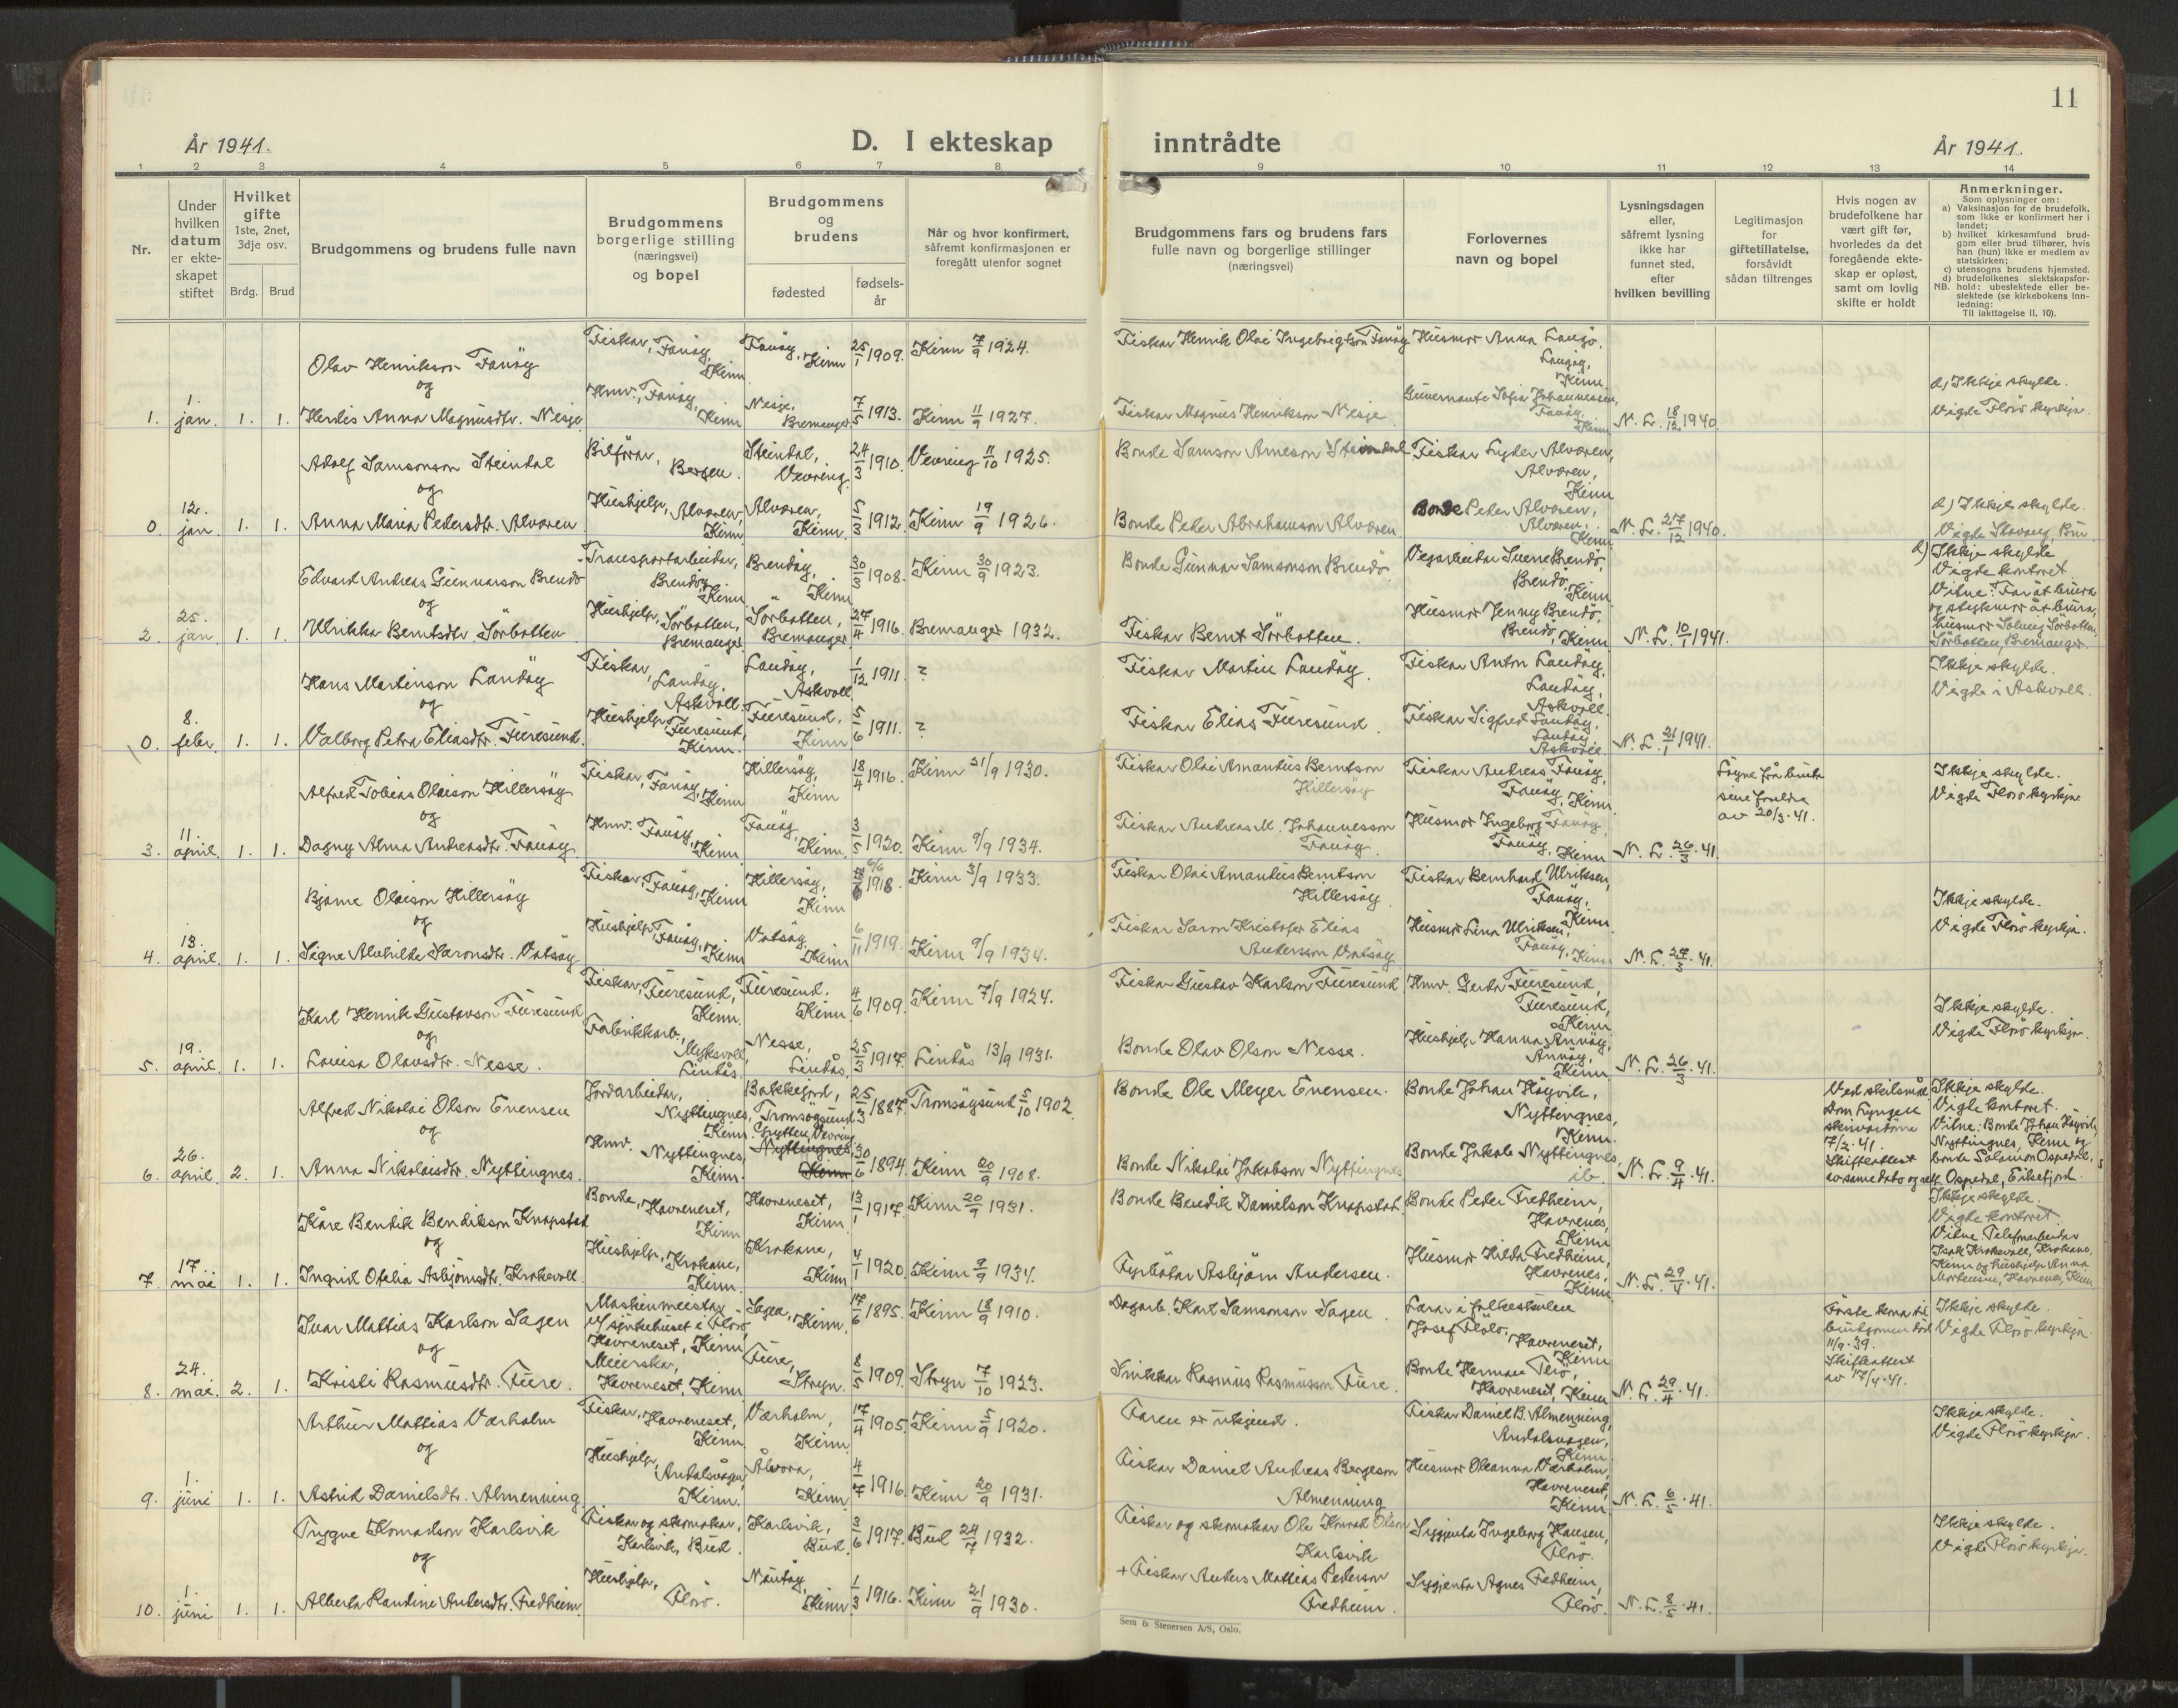 11
År 1941.
D. I ekteskap inntrådte
År 1941.
1 2 3 4 5 6 7 8 9 10 11 12 13 14
Nr.
Under
hvilken
datum
er ekte-
skapet
stiftet
Hvilket
gifte
1ste, 2net,
3dje osv.
Brdg. Brud
Brudgommens og brudens fulle navn
Brudgommens
borgerlige stilling
(næringsvei)
og bopel
Brudgommens
og
brudens
fødested
fødsels-
år
Når og hvor konfirmert,
såfremt konfirmasjonen er
foregått utenfor sognet
Brudgommens fars og brudens fars
fulle navn og borgerlige stillinger
(næringsvei)
Forlovernes
navn og bopel
Lysningsdagen
eller,
såfremt lysning
ikke har
funnet sted,
efter
hvilken bevilling
Legitimasjon
for
giftetillatelse,
forsåvidt
sådan tiltrenges
Hvis nogen av
brudefolkene har
vært gift før,
hvorledes da det
foregående ekte-
skap er opløst,
samt om lovlig
skifte er holdt
Anmerkninger.
Som oplysninger om:
a) Vaksinasjon for de brudefolk,
som ikke er konfirmert her i
landet;
b) hvilket kirkesamfund brud-
gom eller brud tilhører, hvis
han (hun) ikke er medlem av
statskirken;
c) utensogns brudens hjemsted.
d) brudefolkenes slektskapsfor-
NB. hold: ubeslektede eller be-
slektede (se kirkebokens Inn-
ledning:
Til iakttagelse II, 10).
1. 1. jan. 1. 1.
Olav Henrikson Fanöy
og
Herdis Anna Magnusdtr. Nesje
Fiskar, Fanöy, Kinn
Hmv., Fanöy, Kinn
Fanöy, Kinn 25/1 1909. Kinn 7/9 1924.
Nesje, Bremanger 7/5 1913. Kinn 11/9 1927.
Fiskar Henrik Olai Ingebrigtson Fanöy
Fiskar Magnus Henrikson Nesje
Husmor Anna
Kinn.
Sofia Johannessen,
Fanöy, Kinn
N. L. 18/12 1940.
d) Ikkje skylde.
Vigde Florö kyrkje.
0. 12. jan. 1. 1.
Adolf Samsonson Steindal
og
Anna Maria Pedersdtr. Alvoren
Bilförar, Bergen.
Hushjelp, Alvoren, Kinn
Steindal, Vevring. 24/3 1910. Vevring 11/10 1925.
Alvoren, Kinn. 5/3 1912. Kinn 19/9 1926.
Bonde Samson Arneson Steindal
Bonde Peter Abrahamson Alvoren
Fiskar Lyder Alvoren,
Alvoren, Kinn
Bonde Peter Alvoren,
Alvoren, Kinn.
N. L. 27/12 1940.
d) Ikkje skylde.
Vigde Stavang,
2. 25. jan. 1. 1.
Edvard Andreas Gunnarson Brendö
og
Ulrikka Berntsdtr. Sörbotten
Transportarbeidar, Brendöy, Kinn
Hushjelp, Sörbotten, Bremanger
Brendöy, Kinn 30/3 1908. Kinn 30/9 1923.
Sörbotten, Bremanger. 27/4 1916. Bremanger 1932.
Bonde Gunnar Samsonson Brendö
Fiskar Bernt Sörbotten.
Vegarbeidar Sverre Brendö,
Brendö, Kinn.
Husmor Jenny Brendö,
Brendö, Kinn
N. L. 10/1 1941.
d) Ikkje skylde
Vigde kontoret
Vitne: Far åt brura
og stegmor åt brura,
husmor Solveig Sörbotten,
Sörbotten, Bremanger.
0. 8. febr. 1. 1.
Hans Martinson Landöy
og
Valborg Petra Eliasdtr. Furesund.
Fiskar, Landöy, Askvoll.
Hushjelp, Furesund, Kinn.
Landöy, Askvoll 1/12 1911 ?
Furesund, Kinn 5/6 1911. ?
Fiskar Martin Landöy.
Fiskar Elias Furesund
Fiskar Anton Landöy,
Landöy, Askvoll.
Fiskar Sigfred Landöy,
Landöy, Askvoll
N. L. 21/1 1941.
Ikkje skylde.
Vigde i Askvoll.
3. 11. april. 1. 1.
Alfred Tobias Olaison Hillersöy
og
Dagny Alma Andreasdtr. Fanöy
Fiskar, Fanöy, Kinn
Hmv. Fanöy, Kinn
Hillersöy, Kinn 18/4 1916. Kinn 21/9 1930.
Fanöy, Kinn. 3/5 1920. Kinn 9/9 1934.
Fiskar Olai Amandus Berntson
Hillersöy
Fiskar Andreas M. Johannesson
Fanöy.
Fiskar Andreas Fanöy,
Fanöy, Kinn
Husmor Ingeborg Fanöy,
Fanöy, Kinn
N. L. 26/3 41.
frå
sine foreldre
av 20/3. 41.
Ikkje skylde.
Vigde Florö kyrkje.
4. 13. april. 1. 1.
Bjarne Olaison Hillersöy
og
Signe Alvhilde Saronsdtr. Votsöy
Fiskar, Fanöy, Kinn
Hushjelp, Fanöy, Kinn
Hillersöy, Kinn 6/6 1918. Kinn 3/9 1933.
Votsöy, Kinn 6/11 1919. Kinn 9/9 1934.
Fiskar Olai Amandus Berntson
Hillersöy.
Fiskar Saron Kristofer Elias
Andersson Votsöy
Fiskar Bernhard Ulriksen,
Fanöy, Kinn.
Husmor Lina Ulriksen,
Fanöy, Kinn
N. L. 27/3. 41.
Ikkje skylde.
Vigde Florö kyrkje.
5. 19. april. 1. 1.
Karl Henrik Gustavson Furesund
og
Lovisa Olavsdtr. Nesse.
Fiskar, Furesund, Kinn.
Fabrikkarb., Myksvoll, Lindås.
Furesund. Kinn 4/6 1909. Kinn 7/9 1924.
Nesse, Lindås. 25/3 1917. Lindås 13/9 1931.
Fiskar Gustav Karlson Furesund
Bonde Olav Olson Nesse.
Hmv. Gerda Furesund,
Furesund, Kinn.
Hushjelp Hanna Annöy,
Annöy, Kinn
N. L. 26/3. 41.
Ikkje skylde.
Vigde Florö kyrkje.
6. 26. april 2. 1.
Alfred Nikolai Olson Enensen
og
Anna Nikolaisdtr. Nyttingnes.
Jordarbeidar, Nyttingnes, Kinn.
Hmv. Nyttingnes, Kinn.
Bakkejord, Tromsöysund 25/3 1887. Tromsöysund 5/10 1902.
Grytten, Vevring Nyttingnes, Kinn 30/6 1894. Kinn 20/9 1908.
Bonde Ole Meyer Enensen.
Bonde Nikolai Jakobson Nyttingnes
Bonde Johan Högvik,
Nyttingnes, Kinn.
Bonde Jakob Nyttingnes,
ib.
N. L. 9/4. 41.
Ved skilsmål
17/2. 41.
Skifteattest
av same dato
Ikkje skylde.
Vigde kontoret.
Vitne: Bonde Johan Högvik,
Nyttingnes, Kinn og
bonde Salamon Ospedal,
Ospedal, Eikefjord.
7. 17. mai 1. 1.
Kåre Bendik Bendikson Knapstad
og
Ingrid Ofelia Asbjörnsdtr. Krokevoll
Bonde, Havreneset, Kinn
Hushjelp, Krokane, Kinn.
Havreneset, Kinn. 13/1 1917. Kinn 20/9 1931.
Krokane, Kinn 4/1 1920. Kinn 9/9 1934.
Bonde Bendik Danielson Knapstad.
Fyrbötar Asbjörn Andersen.
Bonde Peder Fredheim,
Havrenes, Kinn
Husmor Hilda Fredheim,
Havrenes, Kinn
N. L. 29/4. 41.
Ikkje skylde.
Vigde kontoret.
Vitne Telefonarbeidar
Isak Krokevoll, Krokane,
Kinn og hushjelp Anna
Mortensen, Havrenes, Kinn
8. 24. mai. 2. 1.
Ivar Mattias Karlson Sagen
og
Kristi Rasmusdtr. Fure.
Maskinmeistar
v/ sjukehuset i Florö,
Havreneset, Kinn
Meierskar,
Havreneset, Kinn
Sagen, Kinn. 17/6 1895. Kinn 18/9 1910.
Fure, Stryn. 8/5 1909. Stryn 7/10 1923.
Dagarb. Karl Samsonson Sagen
Snikkar Rasmus Rasmusson Fure.
Lærar i folkeskulen
Josef Flölo, Havreneset,
Kinn
Bonde Herman Terö,
Havreneset, Kinn
N. L. 29/4. 41.
Fyrste kona til
brudgomen död
11/9. 39.
Skifteattest
av 17/4. 41.
Ikkje skylde.
Vigde Florö kyrkje.
9. 1. juni 1. 1.
Arthur Mattias Værholm
og
Astrid Danielsdtr. Almenning.
Fiskar, Havreneset, Kinn
Hushjelp, Andalsvågen, Kinn.
Værholm, Kinn 17/4 1905. Kinn 5/9 1920.
Ålvora, Kinn 4/7 1916. Kinn 20/9 1931.
Faren er ukjend.
Fiskar Daniel Andreas Bergeson
Almenning
Fiskar Daniel B. Almenning,
Andalsvågen, Kinn
Husmor Oleanna Værholm,
Havreneset, Kinn
N. L. 6/5. 41.
Ikkje skylde.
Vigde Florö kyrkje.
10. 1. juni 1. 1.
Trygve Konradson Karlsvik
og
Alberta Randine Andersdtr. Fredheim.
Fiskar og skomakar,
Karlsvik, Bud.
Hushjelp, Florö.
Karlsvik, Bud. 3/6 1917. Bud 24/7 1932.
Nautöy, Kinn 1/3 1916. Kinn 21/9 1930.
Fiskar og skomakar Ole Konrad Olson
Karlsvik
+ Fiskar Anders Mattias Pederson
Fredheim.
Syggjenta Ingeborg Hansen,
Florö.
Syggjenta Agnes Fredheim,
Florö.
N. L. 8/5. 41.
Ikkje skylde.
Vigde Florö kyrkje.
Sem & Stenersen A/S, Oslo.